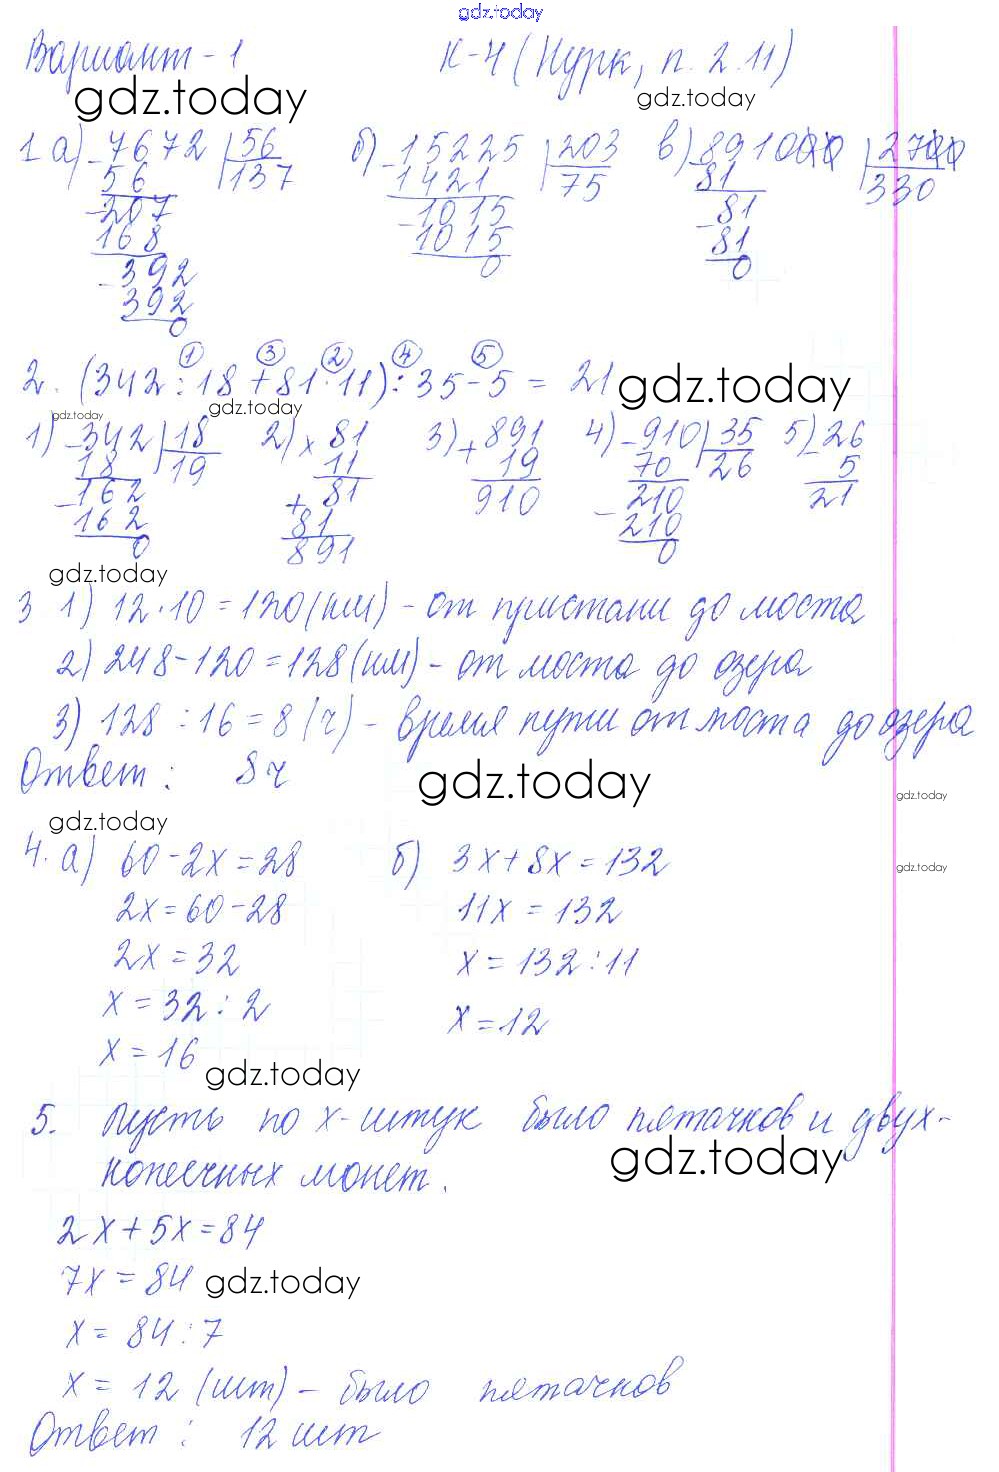 gdz.today
Вариант - 1 К-4 (Нурк, п. 2.11)
gdz.today gdz.today
1 а) 7672 | 56 б) 15225 | 203 в) 891000 | 2700
56 137 1421 75 81 330
207 1015 81
168 1015 81
392 0 0
392
0
2. (342 : 18 + 81 · 11) : 35 - 5 = 21 gdz.today
① ③ ② ④ ⑤
gdz.today gdz.today
1) 342 | 18 2) × 81 3) + 891 4) 910 | 35 5) 26
18 19 11 19 70 26 5
162 + 81 910 210 21
162 81 210
0 891 0
gdz.today
3 1) 12 · 10 = 120 (км) - от пристани до моста
2) 248 - 120 = 128 (км) - от моста до озера
3) 128 : 16 = 8 (ч) - время пути от моста до озера
Ответ: 8 ч gdz.today
gdz.today
gdz.today
gdz.today
4. а) 60 - 2х = 28 б) 3х + 8х = 132
2х = 60 - 28 11х = 132
2х = 32 х = 132 : 11
х = 32 : 2 х = 12
х = 16
gdz.today
5. Пусть по х - штук было пятачков и двух-
gdz.today
копеечных монет.
2х + 5х = 84
7х = 84 gdz.today
х = 84 : 7
х = 12 (шт) - было пятачков
Ответ: 12 шт